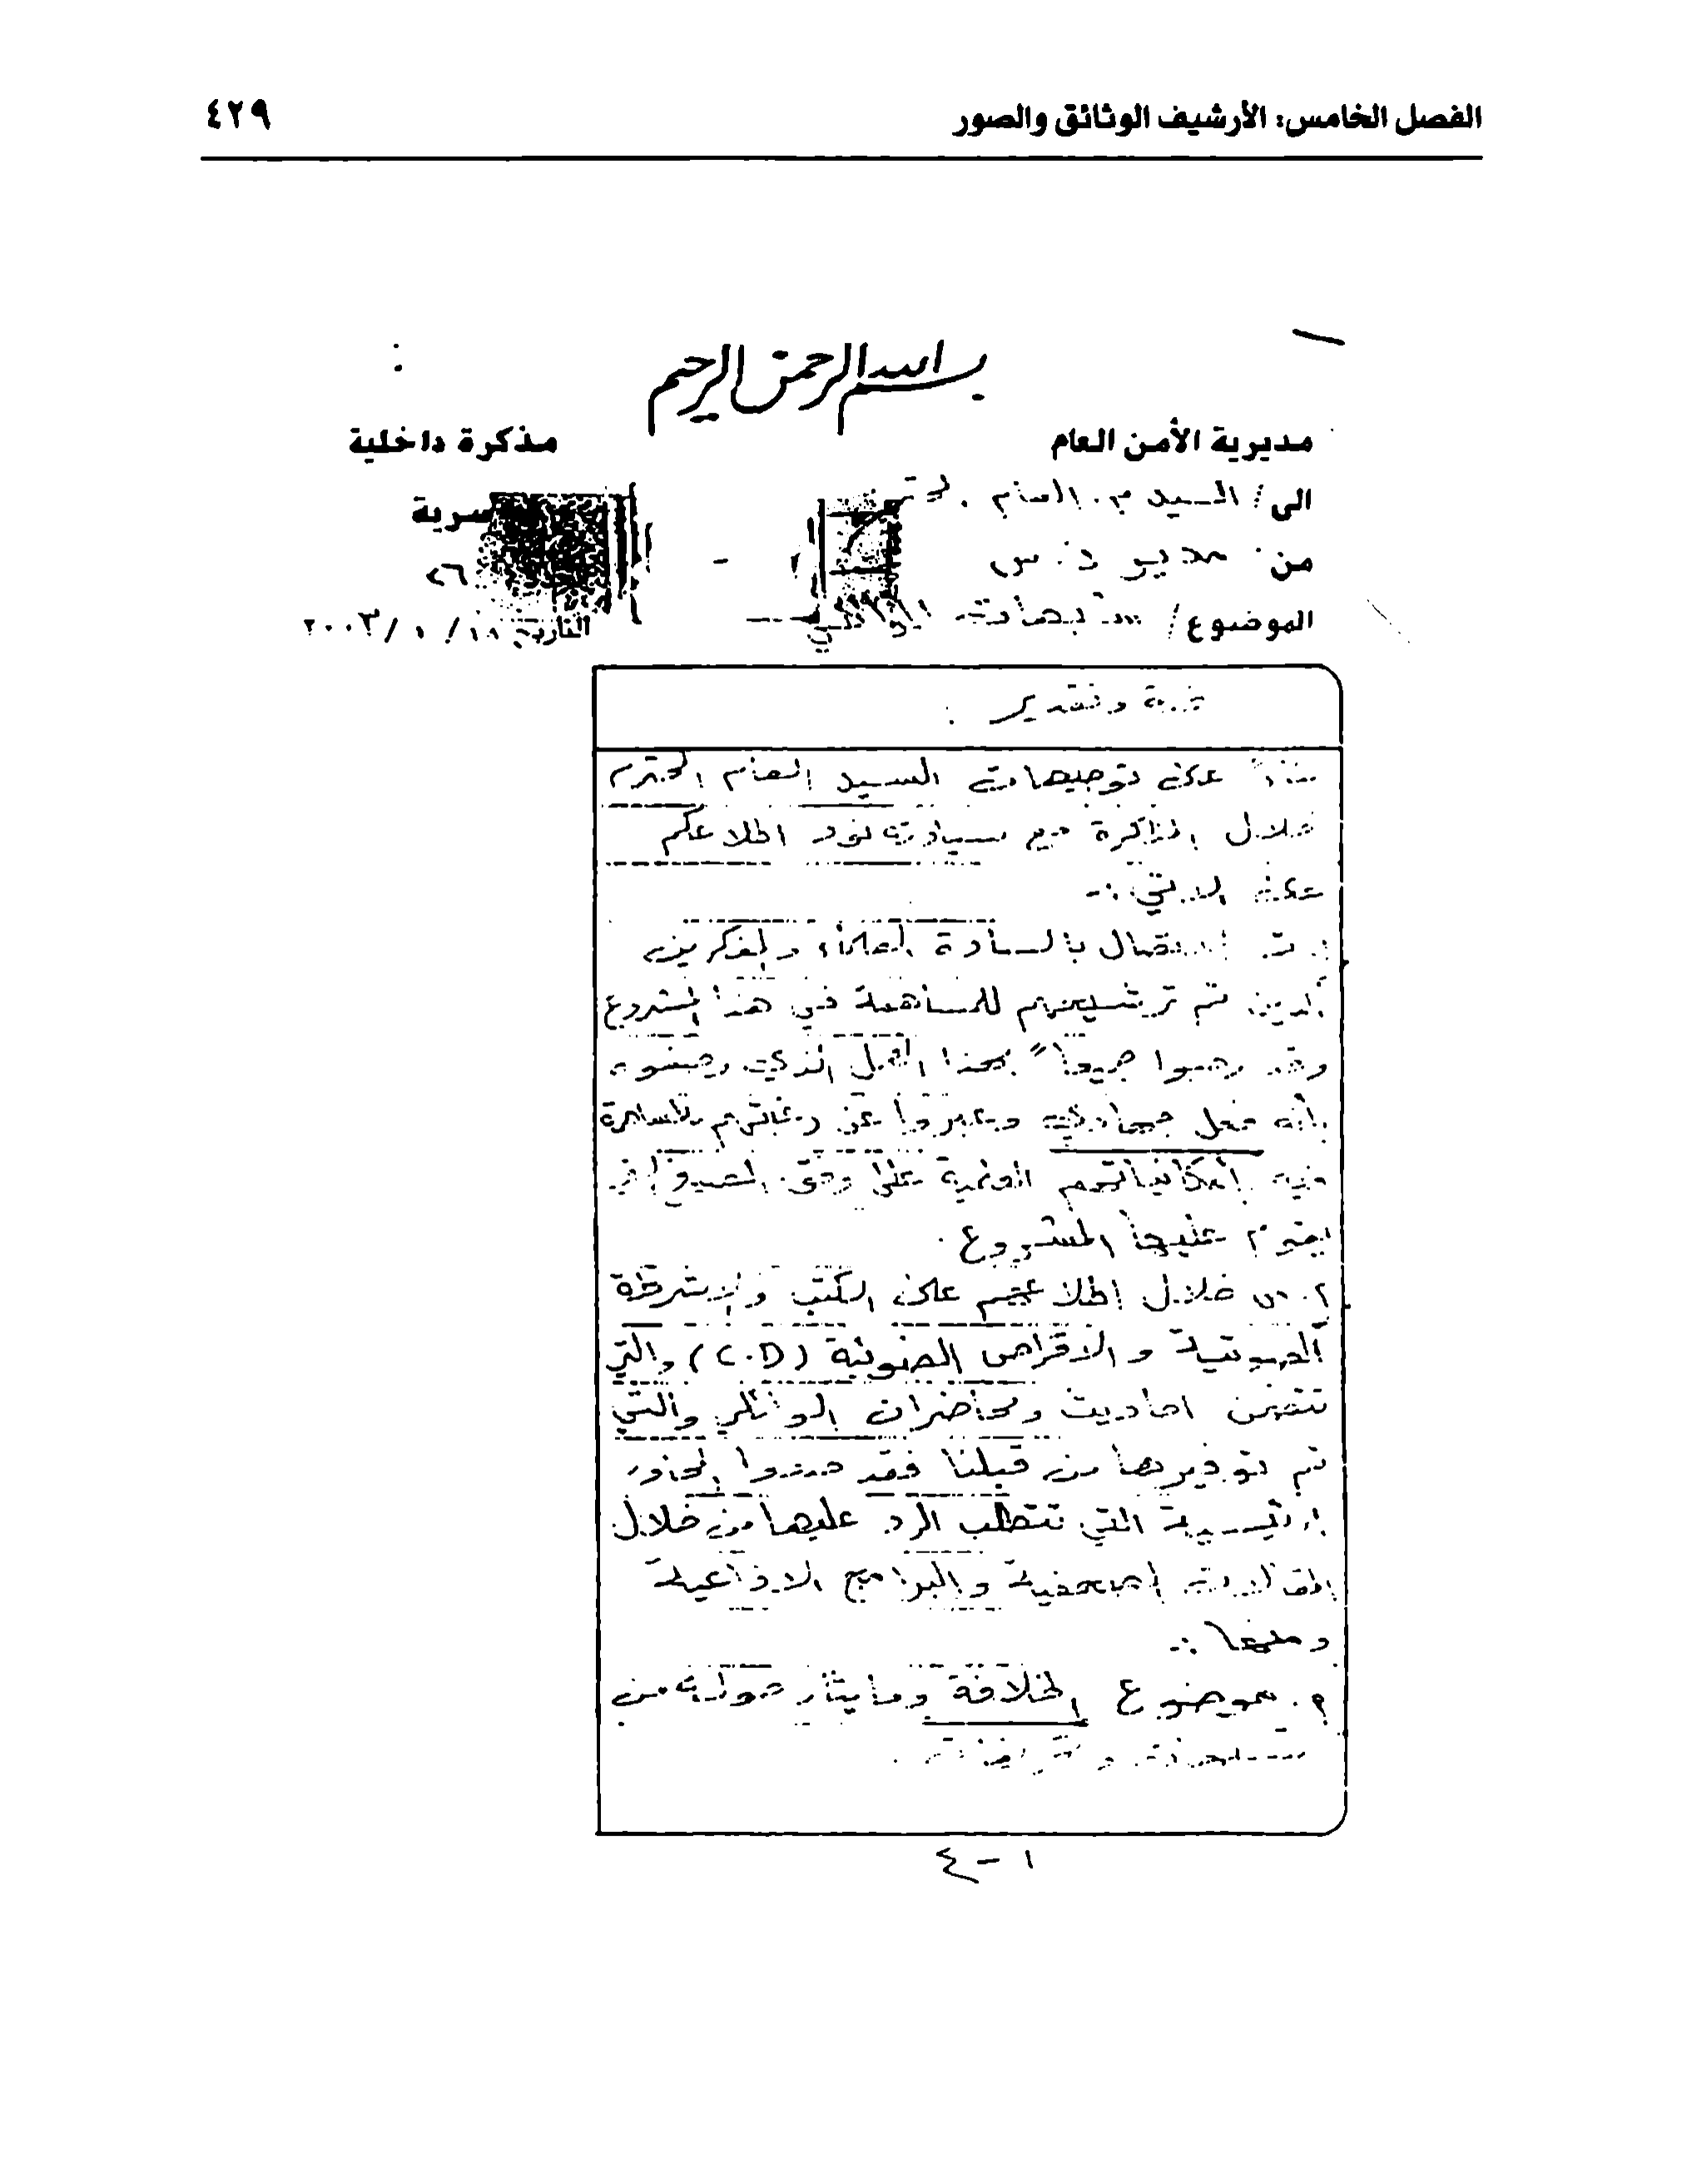 الفصل الخامس: الأرشيف الوثائق والصور ٤٢٩
بسم الله الرحمن الرحيم
مديرية الأمن العام مذكرة داخلية
الى/ السيد م. العام المحترم
سرية
من/ مدير
٢٦
الموضوع/ شبهات الوائلي
التاريخ ١٨/١/٢٠٠٣
تحية وتقدير .
بناءاً على توجيهات السيد العام المحترم
خلال المذاكرة مع سيادته نود اطلاعكم
على الاتي :-
١. تم الاتصال بالسادة العلماء والمفكرين
الذين تم ترشيحهم للمساهمة في هذا المشروع
وقد رحبوا جميعاً بهذا العمل الذي وصفوه
بأنه عمل جهادي وعبروا عن رغبتهم للمساهمة
فيه بامكانياتهم العلمية على وفق
يقوم عليها المشروع .
٢. من خلال اطلاعهم على الكتب والاشرطة
الصوتية والاقراص الضوئية (C.D) والتي
تتضمن احاديث ومحاضرات الوائلي والتي
تم توفيرها من قبلنا فقد حددوا المحاور
الرئيسية التي تتطلب الرد عليها من خلال
المقالات الصحفية والبرامج الاذاعية
ومنها :-
م. موضوع الخلافة وما يثار حوله من
١ - ٤